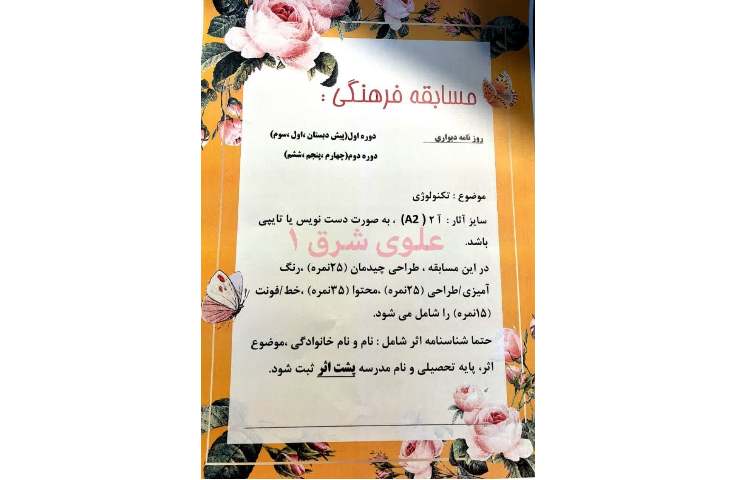 مسابقه فرهنگی :
روزنامه دیواری
دوره اول(پیش دبستان ،اول ،سوم)
دوره دوم(چهارم ،پنجم ،ششم)
موضوع : تکنولوژی
سایز آثار : آ ۲ ( A2) ، به صورت دست نویس یا تایپی
باشد.
علوی شرق ۱
در این مسابقه ، طراحی چیدمان (۲۵نمره) ،رنگ
آمیزی/طراحی (۲۵نمره) ،محتوا (۳۵نمره) ،خط/فونت
(۱۵نمره) را شامل می شود.
حتما شناسنامه اثر شامل : نام و نام خانوادگی ،موضوع
اثر، پایه تحصیلی و نام مدرسه پشت اثر ثبت شود.